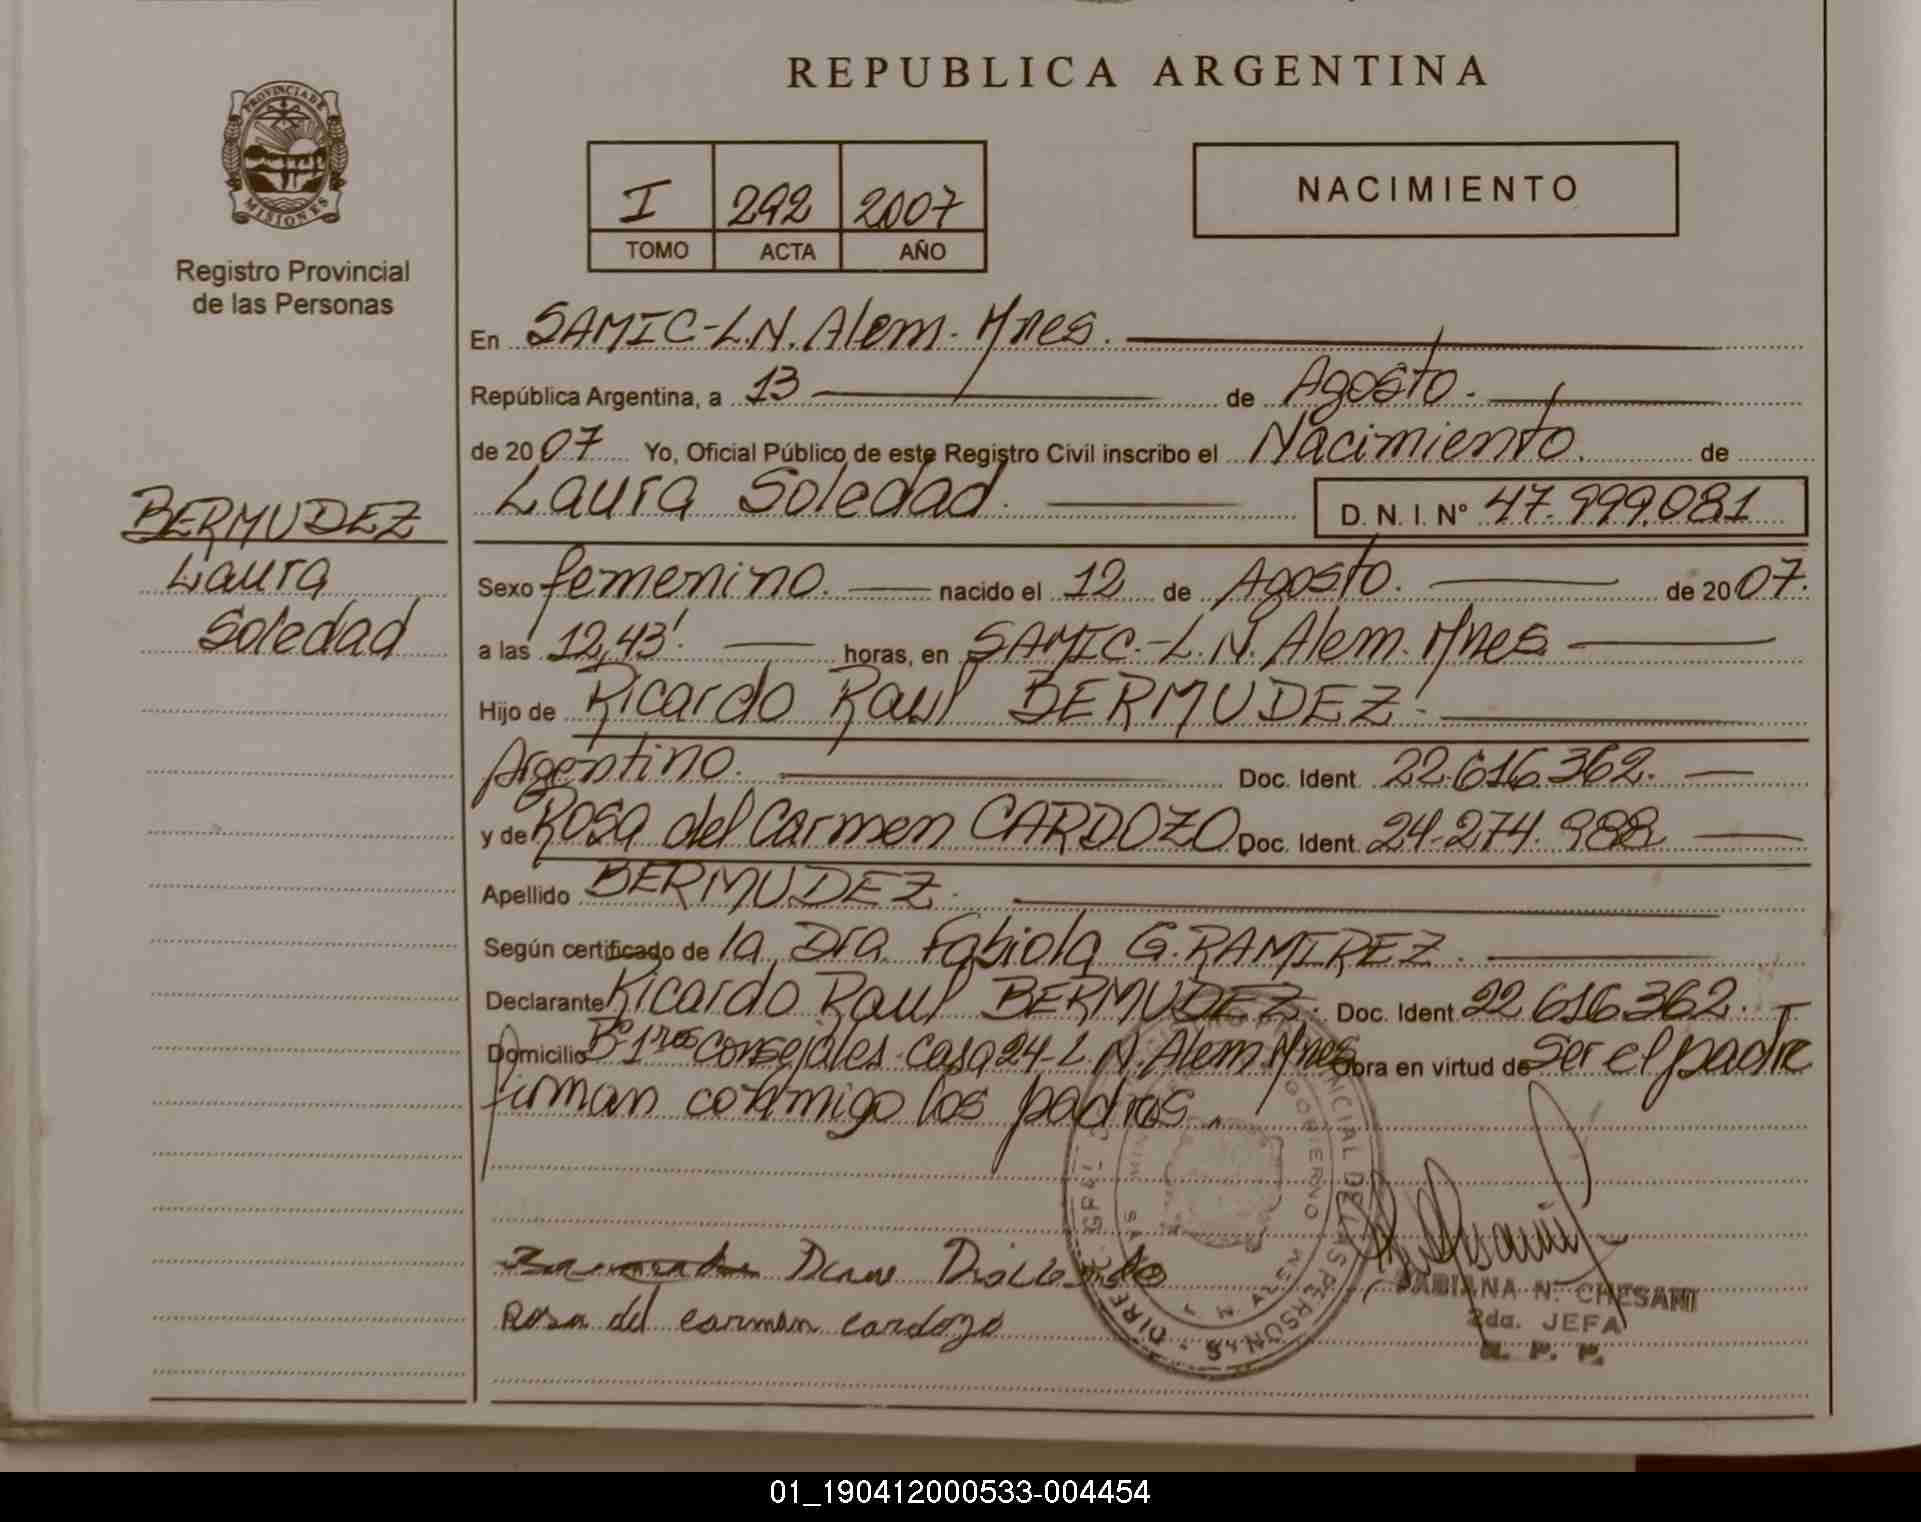 REPUBLICA ARGENTINA
PROVINCIA DE
MISIONES
Registro Provincial
de las Personas
I 292 2007
TOMO ACTA AÑO
NACIMIENTO
En SAMIC-L.N. Alem. Mnes.
República Argentina, a 13 de Agosto.
de 2007 Yo, Oficial Público de este Registro Civil inscribo el Nacimiento. de
Laura Soledad. D. N. I. Nº 47.999.081
BERMUDEZ
Laura
Soledad
Sexo femenino. nacido el 12 de Agosto. de 2007.
a las 12,43'. horas, en SAMIC.-L.N. Alem. Mnes
Hijo de Ricardo Raul BERMUDEZ.
Argentino. Doc. Ident. 22.616.362.
y de Rosa del Carmen CARDOZO Doc. Ident. 24.274.988
Apellido BERMUDEZ.
Según certificado de la Dra. Fabiola G. RAMIREZ.
Declarante Ricardo Raul BERMUDEZ. Doc. Ident. 22.616.362.
Domicilio Bº 1ros Consejales. Casa 24-L.N. Alem Mnes Obra en virtud de Ser el padre
firman conmigo los padres.
Rosa del carmen cardozo
FABIANA N. CHESANI
2da. JEFA
R. P. P.
01_190412000533-004454